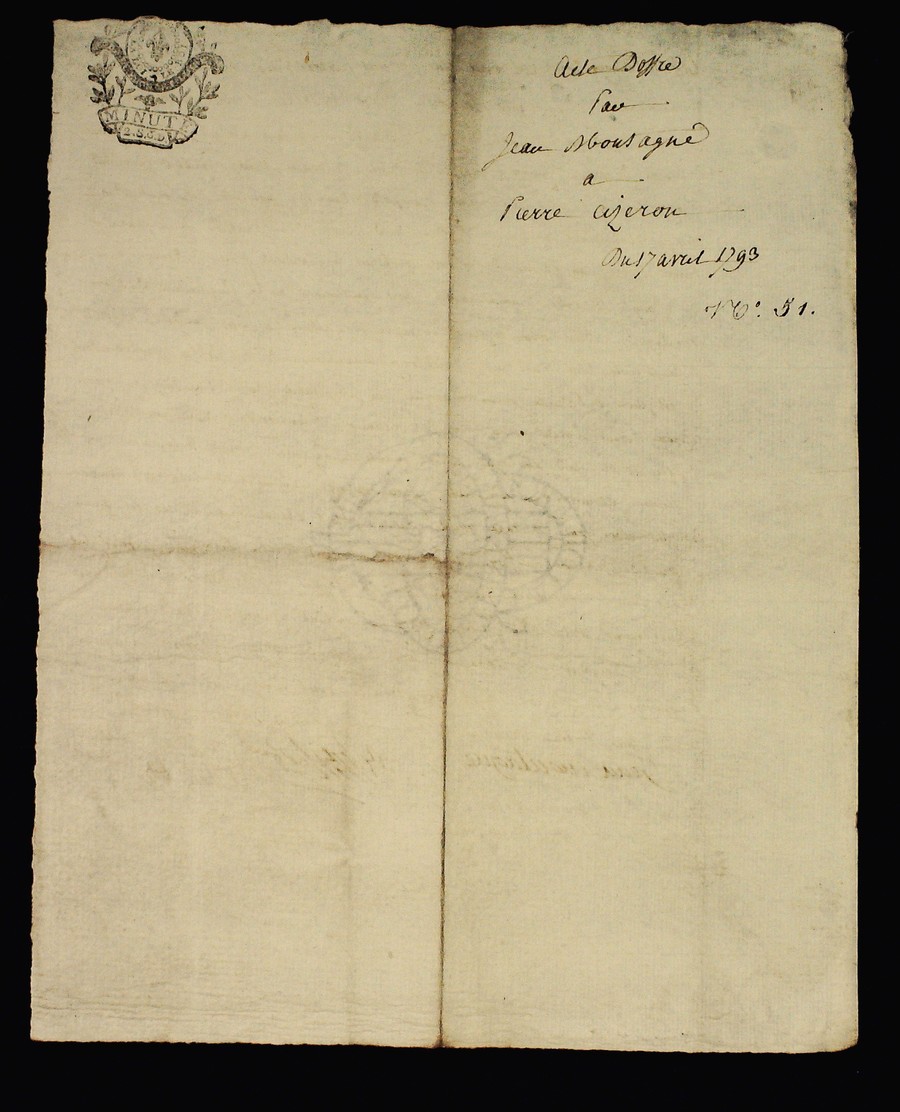 MINUTE
2.S.8.D
Acte Doffre
Par
Jean Montagne
a
Pierre Cizeron
Du 17 avril 1793
No. 51.